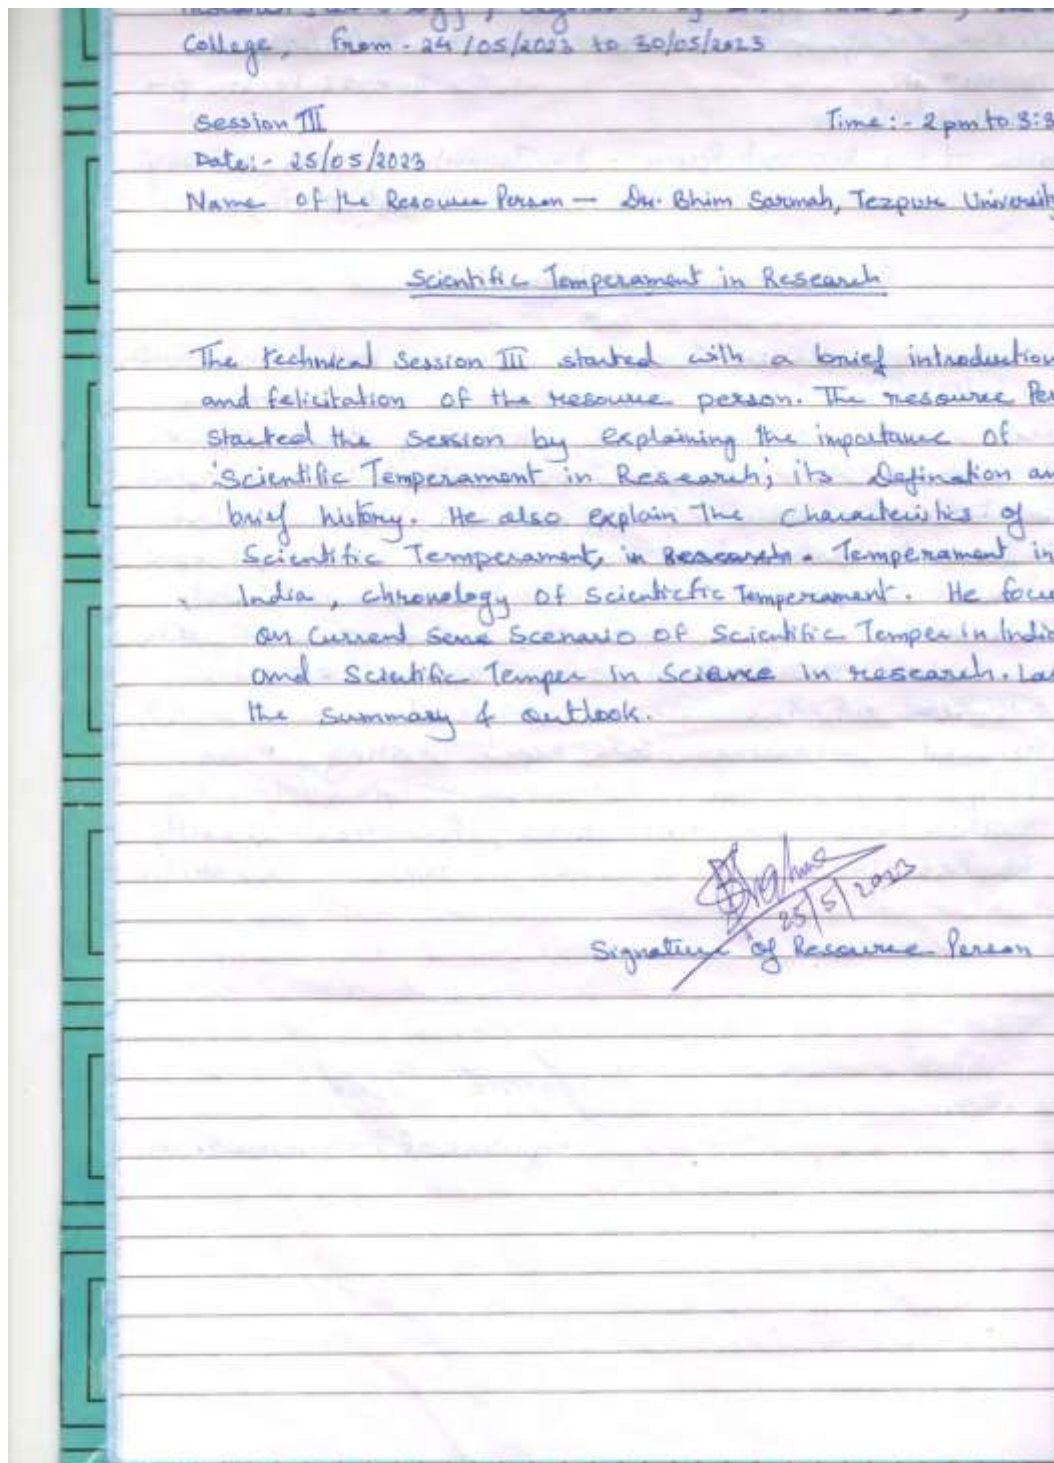 College, From - 24/05/2023 to 30/05/2023
Session III Time :- 2 pm to 3:3
Date :- 25/05/2023
Name of the Resource Person — Dr. Bhim Sarmah, Tezpur University
Scientific Temperament in Research
The technical Session III started with a brief introduction
and felicitation of the resource person. The resource Per
started the session by explaining the importance of
Scientific Temperament in Research; its Defination an
brief history. He also explain The characteristics of
Scientific Temperament, in Research. Temperament in
India, chronology of scientictic Temperament. He focu
on Current Sene Scenario of Scientific Temper in India
and Scientific Temper in Science in research. Las
the Summary & outlook.
25/5/2023
Signature of Resource Person